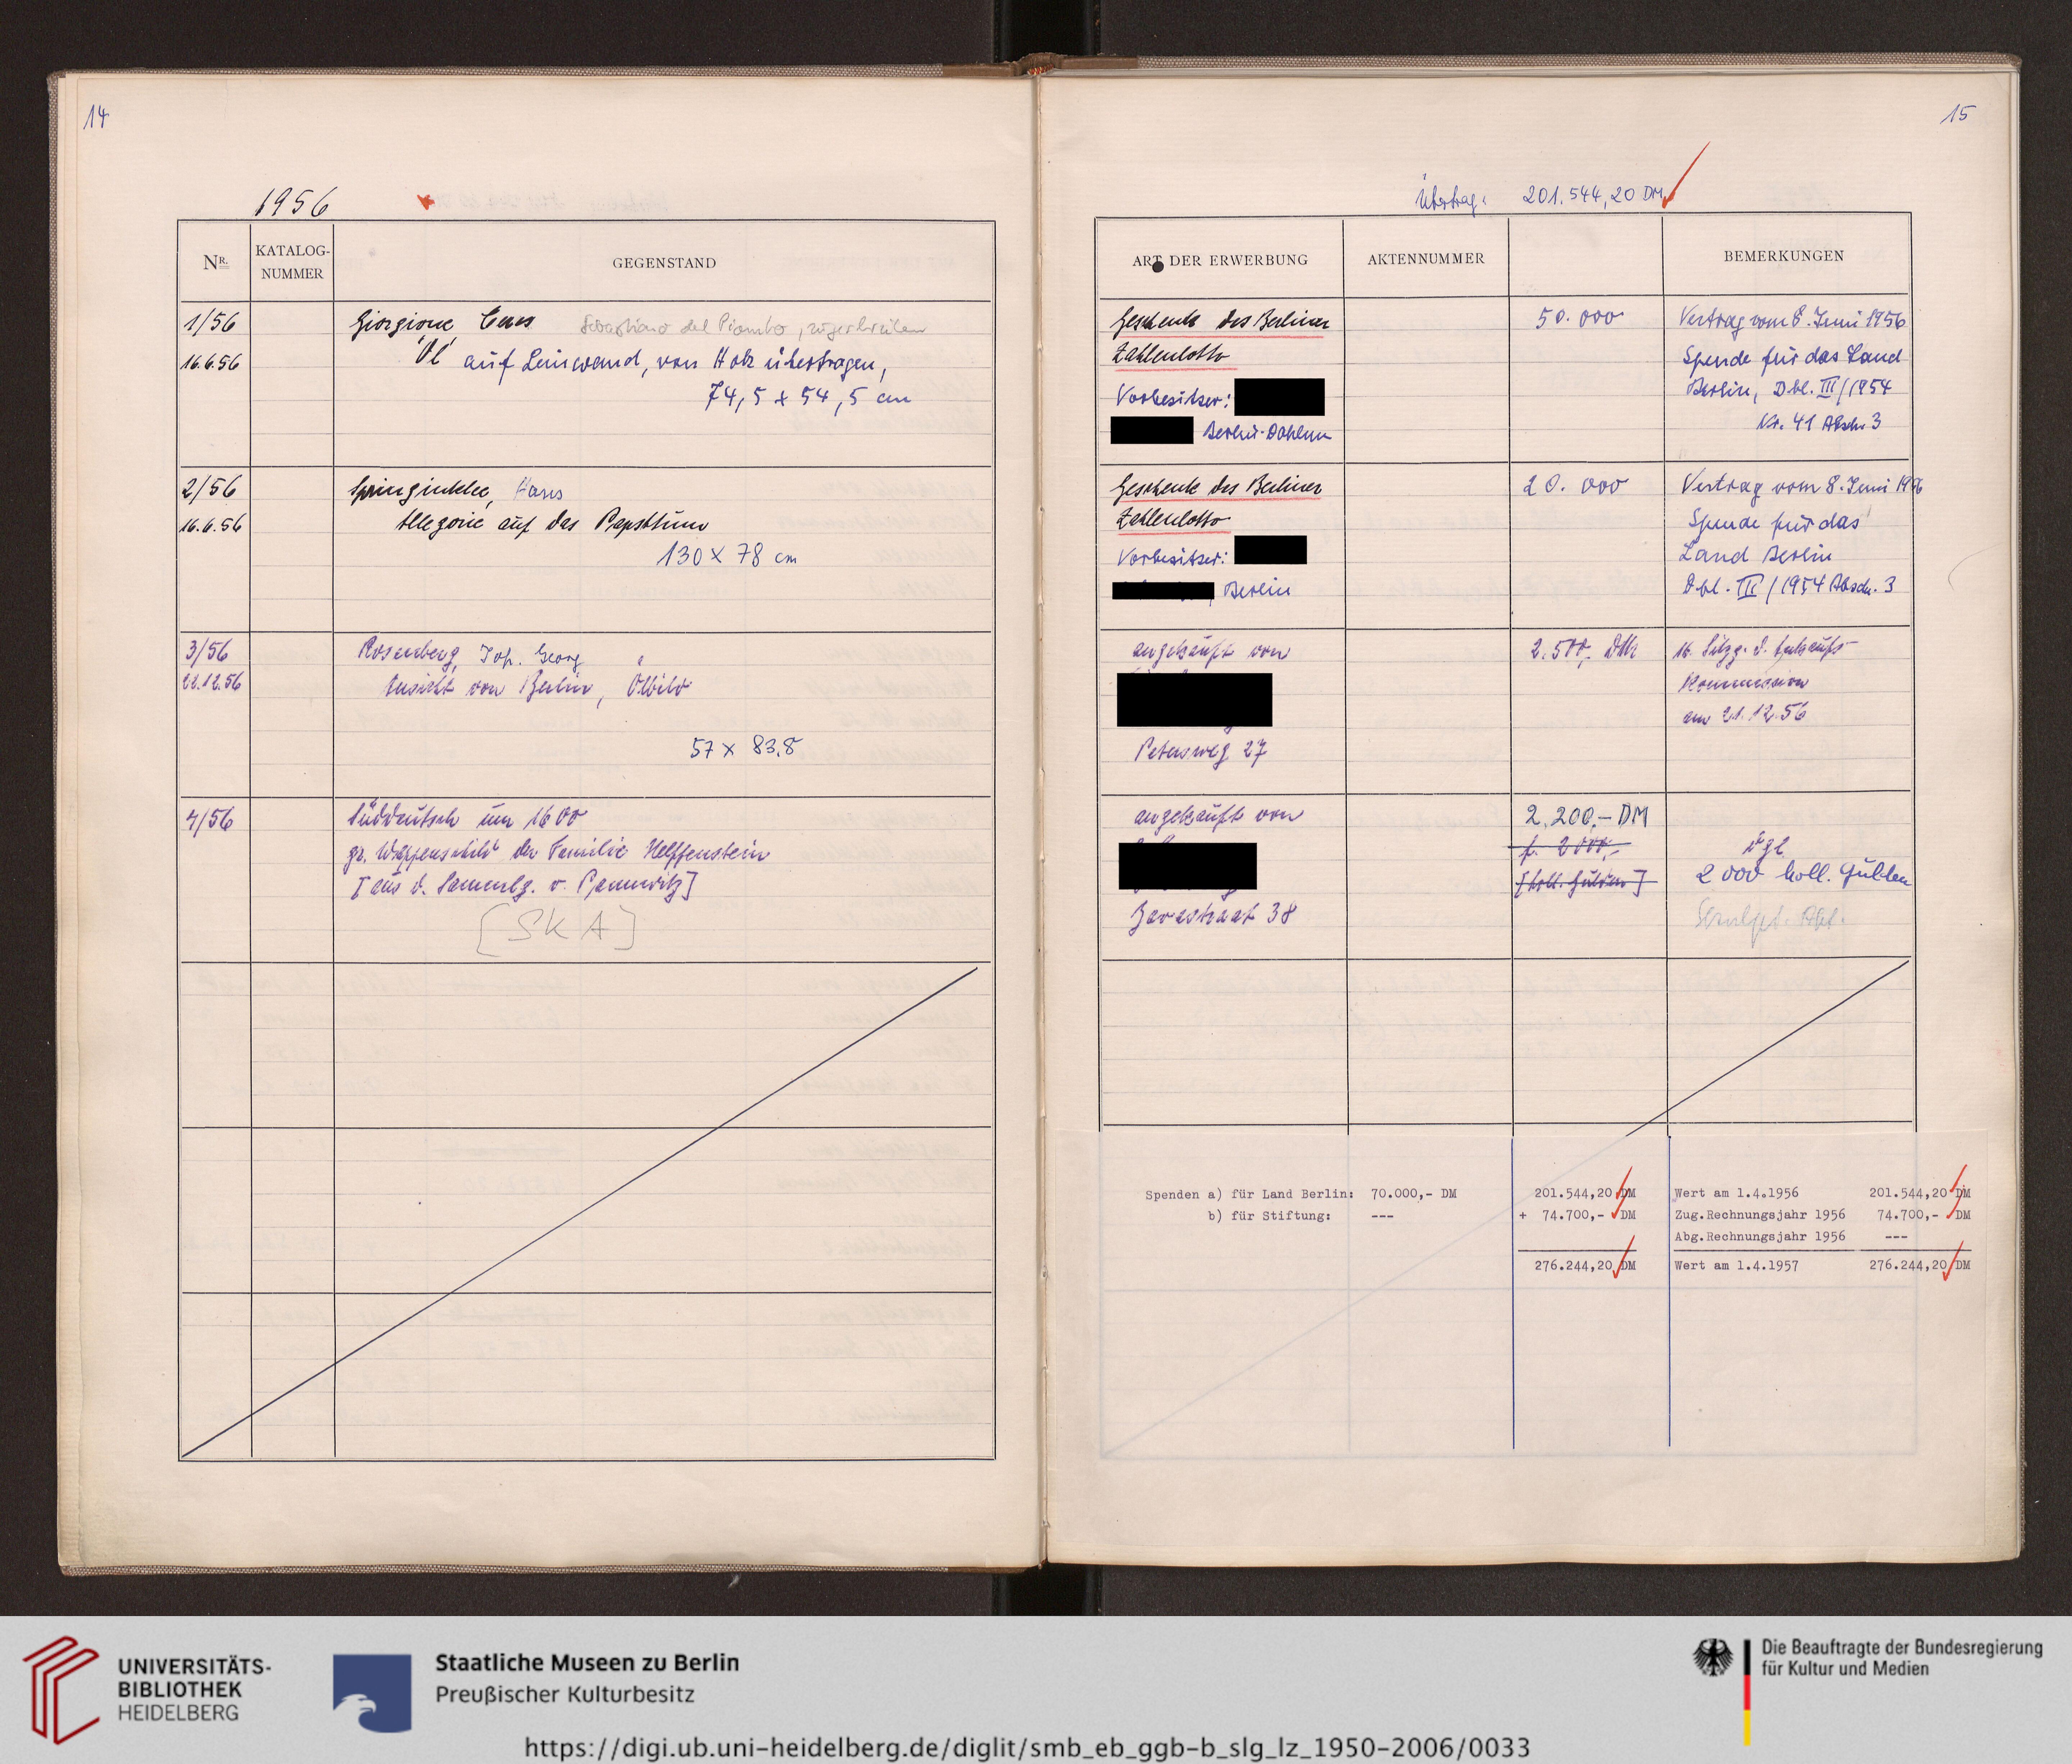 14
1956
Nr.
KATALOG-
NUMMER
GEGENSTAND
1/56
16.6.56
Giorgione Ceres Sebastiano del Piombo, zugeschrieben
Öl auf Leinwand, von Holz übertragen,
74,5 x 54,5 cm
2/56
16.6.56
Springinklee, Hans
Allegorie auf das Papsttum
130 x 78 cm
3/56
21.12.56
Rosenberg, Joh. Georg
Ansicht von Berlin, Ölbild
57 x 83,8
4/56
Süddeutsch um 1600
gr. Wappenschild der Familie Helffenstein
[aus d. Sammlg. v. Pannwitz]
[SKA]
15
Übertrag: 201.544,20 DM
ART DER ERWERBUNG
AKTENNUMMER
BEMERKUNGEN
Geschenk des Berliner
Zahlenlotto
Vorbesitzer:
Berlin-Dahlem
50.000
Vertrag vom 8. Juni 1956
Spende für das Land
Berlin, Dbl. III/1954
Nr. 41 Absch. 3
Geschenk des Berliner
Zahlenlotto
Vorbesitzer:
, Berlin
20.000
Vertrag vom 8. Juni 1956
Spende für das
Land Berlin
Dbl. III/1954 Absch. 3
angekauft von
Petersweg 27
2.500,- DM
16. Sitzg. d. Ankaufs-
Kommission
am 21.12.56
angekauft von
Javastraat 38
2.200,- DM
f. 2000,-
[holl. Gulden]
vgl.
2000 holl. Gulden
Skulpt. Abt.
Spenden a) für Land Berlin: 70.000,- DM
b) für Stiftung: ---
201.544,20 DM
+ 74.700,- DM
276.244,20 DM
Wert am 1.4.1956 201.544,20 DM
Zug.Rechnungsjahr 1956 74.700,- DM
Abg.Rechnungsjahr 1956 ---
Wert am 1.4.1957 276.244,20 DM
UNIVERSITÄTS-
BIBLIOTHEK
HEIDELBERG
Staatliche Museen zu Berlin
Preußischer Kulturbesitz
Die Beauftragte der Bundesregierung
für Kultur und Medien
https://digi.ub.uni-heidelberg.de/diglit/smb_eb_ggb-b_slg_lz_1950-2006/0033